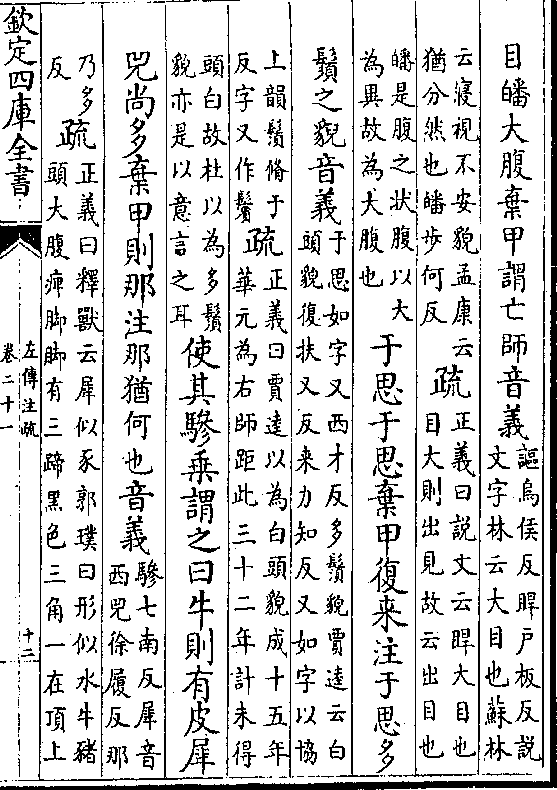 目皤大腹棄甲謂亡師音義謳烏侯反睅户板反説
文字林云大目也蘇林
云寢視不安貌孟康云
猶分然也皤步何反疏正義曰説文云睅大目也
目大則出見故云出目也
皤是腹之狀腹以大
為異故為大腹也于思于思棄甲復来注于思多
鬚之貌音義于思如字又西才反多鬚貌賈逵云白
頭貌復扶又反来力知反又如字以協
上韻鬚脩于
反字又作鬢疏正義曰賈逵以為白頭貌成十五年
華元為右師距此三十二年計未得
頭白故杜以為多鬚
貌亦是以意言之耳使其驂乘謂之曰牛則有皮犀
兕尚多棄甲則那注那猶何也音義驂七南反犀音
西兕徐履反那
乃多
反疏正義曰釋獸云犀似豕郭璞曰形似水牛豬
頭大腹痺脚脚有三蹄黑色三角一在頂上
欽定四庫全書
左傳注疏
卷二十一
十二